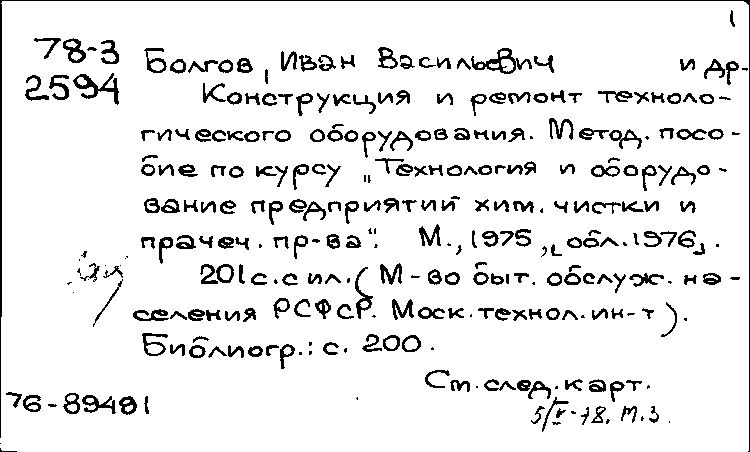 1
78-3 Болгов, Иван Васильевич и др.
2594 Конструкция и ремонт техноло-
гического оборудования. Метод. посо-
бие по курсу „Технология и оборудо-
вание предприятий хим. чистки и
прачеч. пр-ва". М., 1975, [обл. 1976].
201 с. с ил. (М-во быт. обслуж. на-
селения РСФСР. Моск. технол. ин-т).
Библиогр.: с. 200.
Ст. след. карт.
76-89481
5/V-78. М.З.